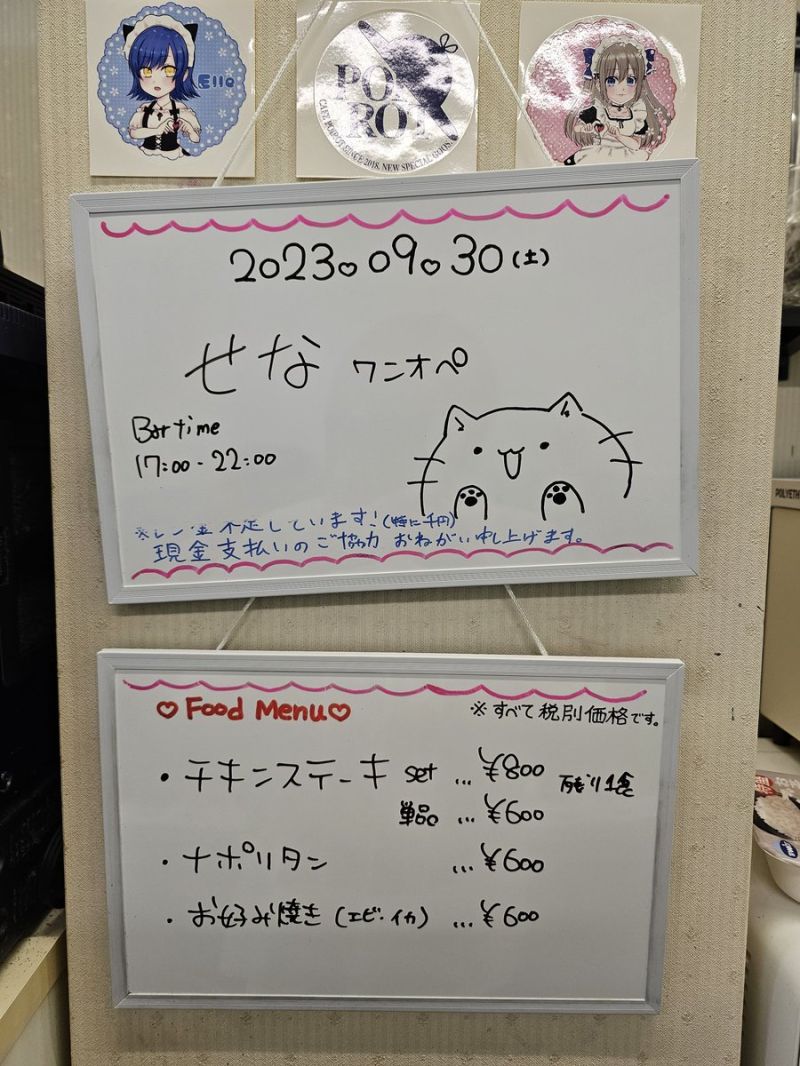 Ello
CAFE POPROT SINCE 2018. NEW SPECIAL GOODS!
2023♡09♡30(土)
せな ワンオペ
Bar time
17:00 - 22:00
※レン金不足しています!(特に千円)
現金支払いのご協力 おねがい申し上げます。
♡Food Menu♡
※すべて税別価格です。
・チキンステーキ set … ¥800 残り1食
単品 … ¥600
・ナポリタン … ¥600
・お好み焼き(エビ・イカ) … ¥600
POLYETH